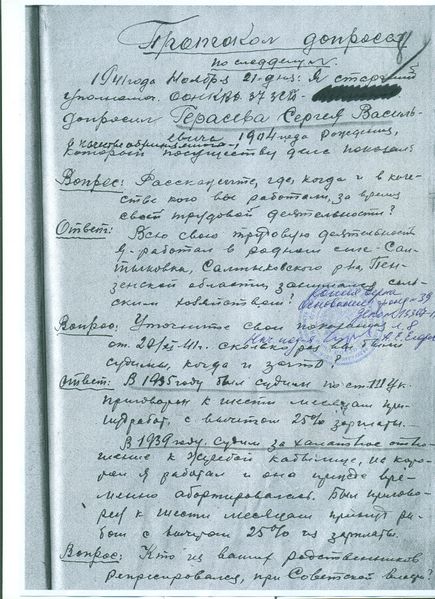 Протокол допроса
по следделу.
1941 года Ноября 21-дня: Я старший
уполномоч. ООНКВД 37 зсп
допросил Герасева Сергея Василь-
евича, 1904 года рождения,
в качестве обвиняемого
который по существу дела показал:
Вопрос: Расскажите, где, когда и в каче-
стве кого вы работали, за время
своей трудовой деятельности?
Ответ: Всю свою трудовую деятельность
я работал в родном селе Сал-
тыковка, Салтыковского р-на, Пен-
зенской области, занимался сель-
ским хозяйством?
Копия верна
Вопрос: Уточните свои показания
от 20/XI-41г. сколько раз вы были
судимы, когда и за что?
Ответ: В 1935 году был судим по ст. 111 УК.
приговорен к шести месяцам при-
нудработ, с вычетом 25% зарплаты.
В 1939 году. судим за халатное отно-
шение к жеребой кобылице, на кото-
рой я работал и она прежде вре-
менно абортировалась. Был пригово-
рен к шести месяцам принуд ра-
бот с вычетом 25% из зарплаты.
Вопрос: Кто из ваших родственников
репрессировался, при Советской власти?